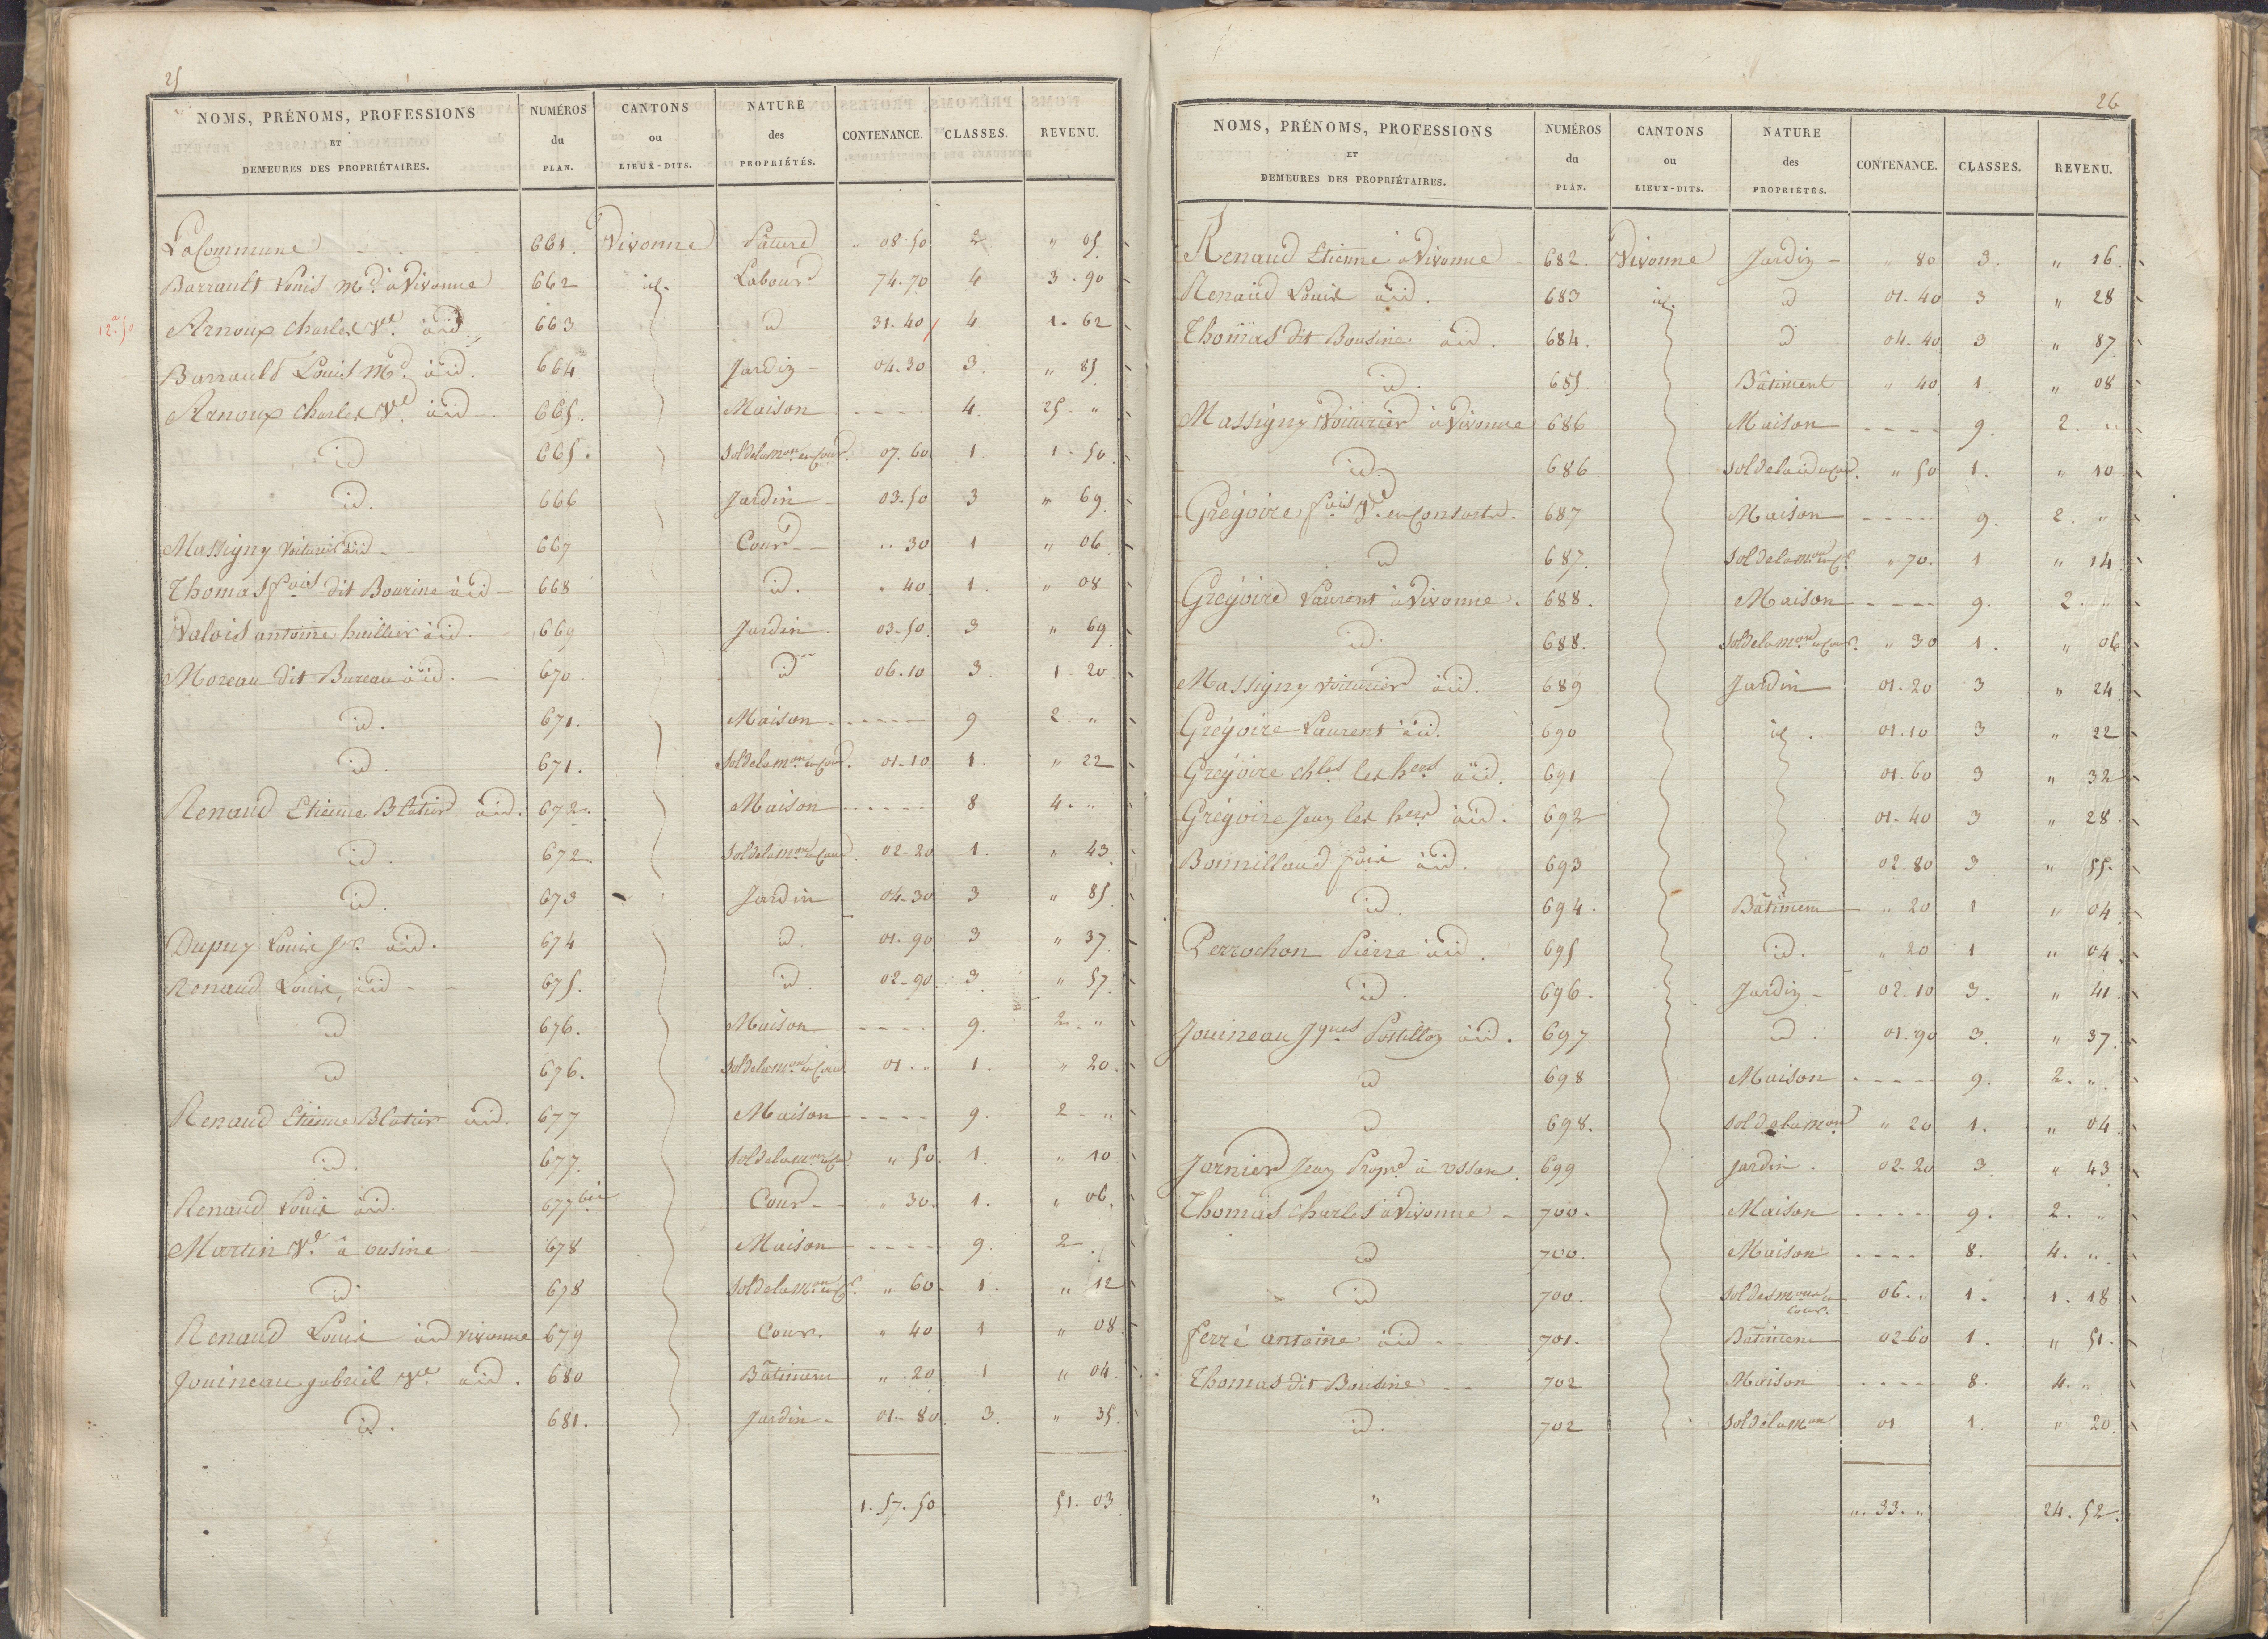 25
NOMS, PRÉNOMS, PROFESSIONS ET DEMEURES DES PROPRIÉTAIRES. NUMÉROS du PLAN. CANTONS ou LIEUX-DITS. NATURE des PROPRIÉTÉS. CONTENANCE. CLASSES. REVENU.
La Commune 661. Vivonne Pâture " 08-50 2 " 05
Barrault Louis Md. à Vivonne 662 id. Labour 74-70 4 3-90
12a.50 Arnoux Charles Ve. à id 663 id 31-40 4 1-62
Barrault Louis Md. à id. 664 Jardin 04-30 3. " 85
Arnoux Charles Ve. à id 665. Maison - - - - 4. 25. "
id 665. Sol de la mon. et Cour. 07.60 1. 1-50
id. 666 Jardin 03-50 3 " 69
Massigny Voiturier à id 667 Cour " 30 1 " 06
Thomas fois dit Bourine à id 668 id. " 40 1. " 08
Valois antoine huillier à id. 669 Jardin 03-50 3 " 69
Moreau dit Bureau à id. 670 id 06-10 3. 1-20
id. 671. Maison - - - - 9 2. "
id. 671. Sol de la mon. et Cour. 01-10 1. " 22
Renaud Etienne Blatier à id. 672. Maison - - - - 8 4. "
id. 672. Sol de la mon. et Cour. 02-20 1. " 43
id. 673 Jardin 04-30 3 " 85
Dupuy Louis Jne. à id. 674 id. 01-90 3 " 37
Renaud Louis, à id 675. id. 02-90 3. " 57
id 676. Maison - - - - 9. 2. "
id 676. Sol de la mon. et Cour 01. " 1. " 20.
Renaud Etienne Blatier à id. 677 Maison - - - - 9. 2 - "
id. 677. Sol de la mon. et Cour " 50. 1. " 10
Renaud Louis à id. 677 bis Cour " 30. 1. " 06.
Martin Ve. à ousine 678 Maison - - - - 9. 2
id. 678 Sol de la mon. et Cr. " 60. 1. " 12
Renaud Louis à id vivonne 679 Cour. " 40 1 " 08
Jouineau gabriel Ve. à id. 680 Bâtiment " 20 1 " 04
id. 681. Jardin 01-80 3. " 35
1. 57. 50 51. 03
26
NOMS, PRÉNOMS, PROFESSIONS ET DEMEURES DES PROPRIÉTAIRES. NUMÉROS du PLAN. CANTONS ou LIEUX-DITS. NATURE des PROPRIÉTÉS. CONTENANCE. CLASSES. REVENU.
Renaud Etienne à Vivonne 682. Vivonne Jardin " 80 3. " 16
Renaud Louis à id. 683 id. id 01-40 3 " 28
Thomas dit Bousine à id. 684. id 04-40 3 " 87
id. 685. Bâtiment " 40 1. " 08
Massigny Voiturier à Vivonne 686 Maison - - - - 9. 2. "
id. 686 Sol de la id et Cour. " 50 1. " 10
Grégoire fois Ve. 687 Maison - - - - 9. 2. "
id 687. Sol de la mon. et Cr. " 70. 1 " 14
Grégoire Laurent à Vivonne. 688. Maison - - - - 9. 2. "
id. 688. Sol de la mon. et Cour. " 30 1. " 06
Massigny voiturier à id. 689 Jardin 01-20 3 " 24
Grégoire Laurent à id. 690 id. 01.10 3 " 22
Grégoire Chles les hers à id. 691 01-60 3 " 32
Grégoire Jean les hers à id. 692 01-40 3 " 28
Bonnillaud fois à id. 693 02 80 3 " 55.
id. 694. Bâtiment " 20 1 " 04
Perrochon Pierre à id. 695 id. " 20 1 " 04
id. 696. Jardin 02-10 3. " 41
Jouineau Jques Postillon à id. 697 id. 01-90 3. " 37
id 698 Maison - - - - 9. 2. "
id 698. Sol de la mon " 20 1. " 04
Jarnier Jean Propre. à usson. 699 Jardin. 02-20 3 " 43
Thomas Charles à Vivonne 700. Maison - - - - 9. 2. "
id 700. Maison - - - - 8. 4. "
id 700. Sol des mons et Cour. 06. " 1. 1. 18
ferré antoine à id 701. Bâtiment 02-60 1. " 51.
Thomas dit Bousine 702 Maison - - - - 8. 4. "
id. 702 Sol de la mon 01 1. " 20
" ". 33. " 24. 52.